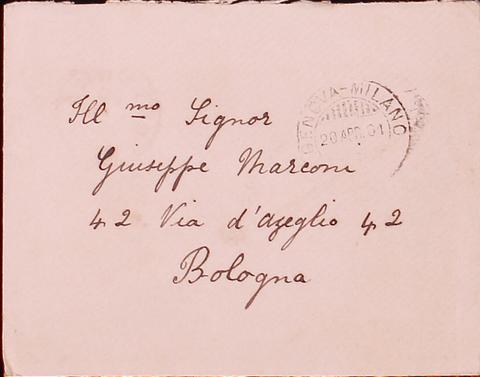 Ill mo Signor
Giuseppe Marconi
42 Via d'Azeglio 42
Bologna
GENOVA-MILANO
20 APR. 01